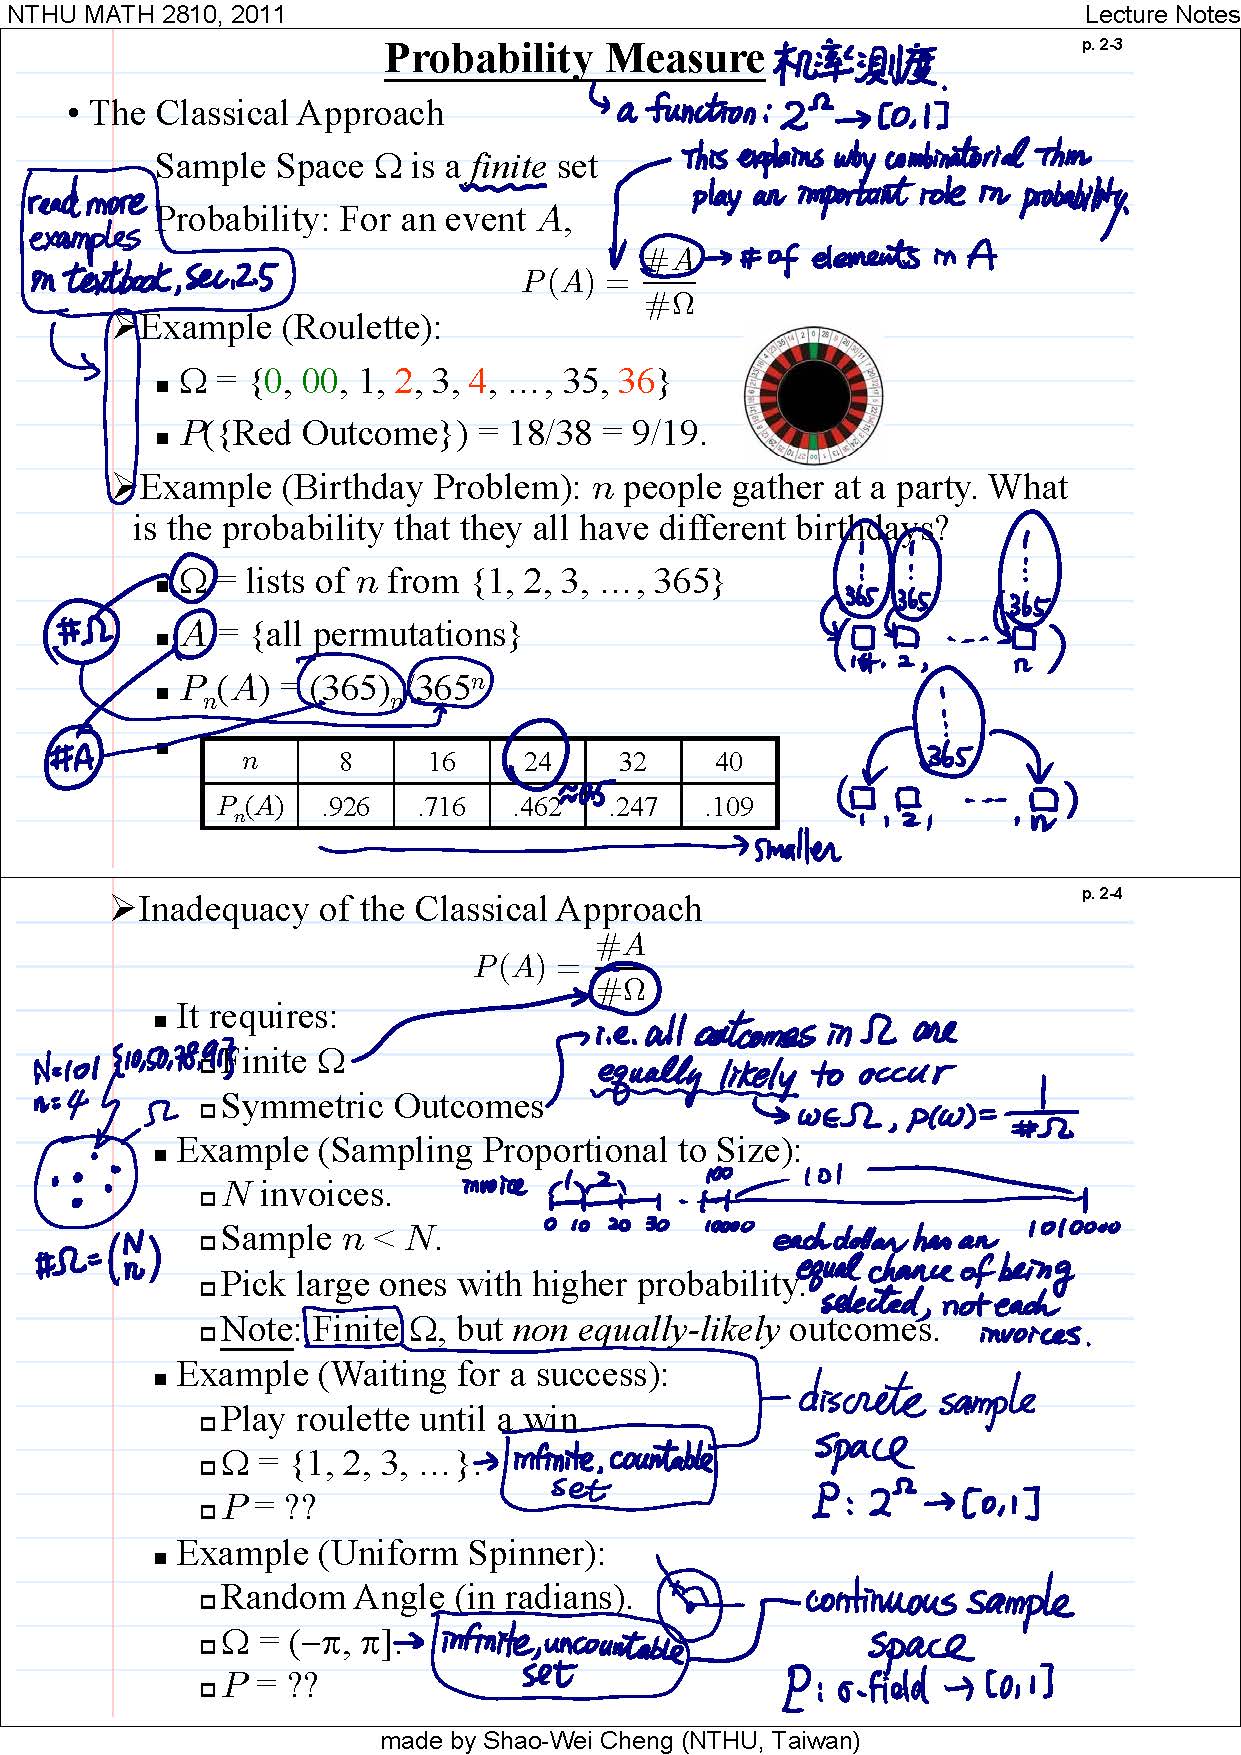 NTHU MATH 2810, 2011
Lecture Notes
p. 2-3
Probability Measure 机率測度.
→ a function: 2^Ω → [0,1]
• The Classical Approach
Sample Space Ω is a finite set
This explains why combinatorial Thm
play an important role in probability.
read more
examples
in textbook, sec. 2.5
Probability: For an event A,
P(A) = #A / #Ω
→ # of elements in A
➢Example (Roulette):
▪ Ω = {0, 00, 1, 2, 3, 4, …, 35, 36}
▪ P({Red Outcome}) = 18/38 = 9/19.
➢Example (Birthday Problem): n people gather at a party. What
is the probability that they all have different birthdays?
▪ Ω = lists of n from {1, 2, 3, …, 365}
▪ A = {all permutations}
▪ Pₙ(A) = (365)ₙ/365ⁿ
#Ω
#A
1 1 1
365 365 365
(□, □, ---- □)
1st, 2, n
1
365
(□, □, ---- , □)
1, 2, n
n 8 16 24 32 40
Pₙ(A) .926 .716 .462 .247 .109
≈0.5
→ smaller
p. 2-4
➢Inadequacy of the Classical Approach
P(A) = #A / #Ω
▪ It requires:
□ Finite Ω
□ Symmetric Outcomes
→ i.e. all outcomes in Ω are
equally likely to occur
→ ω∈Ω, P(ω) = 1/#Ω
N=101 {10,50,78,91}
n=4
Ω
#Ω = (N n)
▪ Example (Sampling Proportional to Size):
□ N invoices.
□ Sample n < N.
□ Pick large ones with higher probability.
□ Note: Finite Ω, but non equally-likely outcomes.
invoice 1 2 100 101
0 10 20 30 10000 1010000
each dollar has an
equal chance of being
selected, not each
invoices.
▪ Example (Waiting for a success):
□ Play roulette until a win
□ Ω = {1, 2, 3, …}.
→ infinite, countable
set
□ P = ??
discrete sample
space
P: 2^Ω → [0,1]
▪ Example (Uniform Spinner):
□ Random Angle (in radians).
□ Ω = (−π, π].
→ infinite, uncountable
set
□ P = ??
continuous sample
space
P: σ-field → [0,1]
made by Shao-Wei Cheng (NTHU, Taiwan)